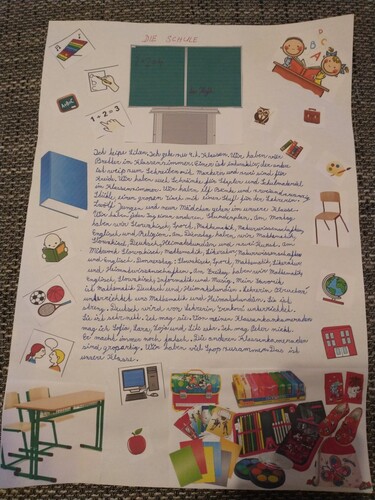 DIE SCHULE
ABC
1+2=3
Ich heiße Ellen. Ich gehe in 4.b Klasse. Wir haben vier
im Klassenzimmer. Eine ist
ist weiß zum Schreiben mit Markern und zwei sind für
Kreide. Wir haben viel Schränke für
im Klassenzimmer. Wir haben elf Bänke und
Stühle, einen großen Tisch mit einem Stuhl für die Lehrerin.
Zwölf Jungen und neun Mädchen gehen in unsere Klasse.
Wir haben jeden Tag einen anderen Stundenplan. Am Montag
haben wir Slowakisch, Sport, Mathematik, Naturwissenschaften,
Englisch und Religion. Am Dienstag haben wir Mathematik,
Slowakisch, Deutsch, Heimatkunde und zwei Kunst. Am
Mittwoch Slowakisch, Mathematik, Literatur, Naturwissenschaften
und Englisch. Donnerstag: Slowakisch, Sport, Mathematik, Literatur
und Heimatwissenschaften. Am Freitag haben wir Mathematik,
Englisch, Slowakisch, Informatik und Musik. Mein Favorit
ist Mathematik, Deutsch und Heimatkunde. Lehrerin
unterrichtet uns Mathematik und Heimatkunde. Sie ist
streng. Deutsch wird von Lehrerin unterrichtet.
Sie ist sehr nett. Ich mag sie. Von meinen Klassenkameraden
mag ich Sofia, Sara, Zoja und Lili. Ich mag Peter nicht.
Er macht immer noch falsch. Die anderen Klassenkameraden
sind großartig. Wir haben viel Spaß zusammen. Das ist
unsere Klasse.